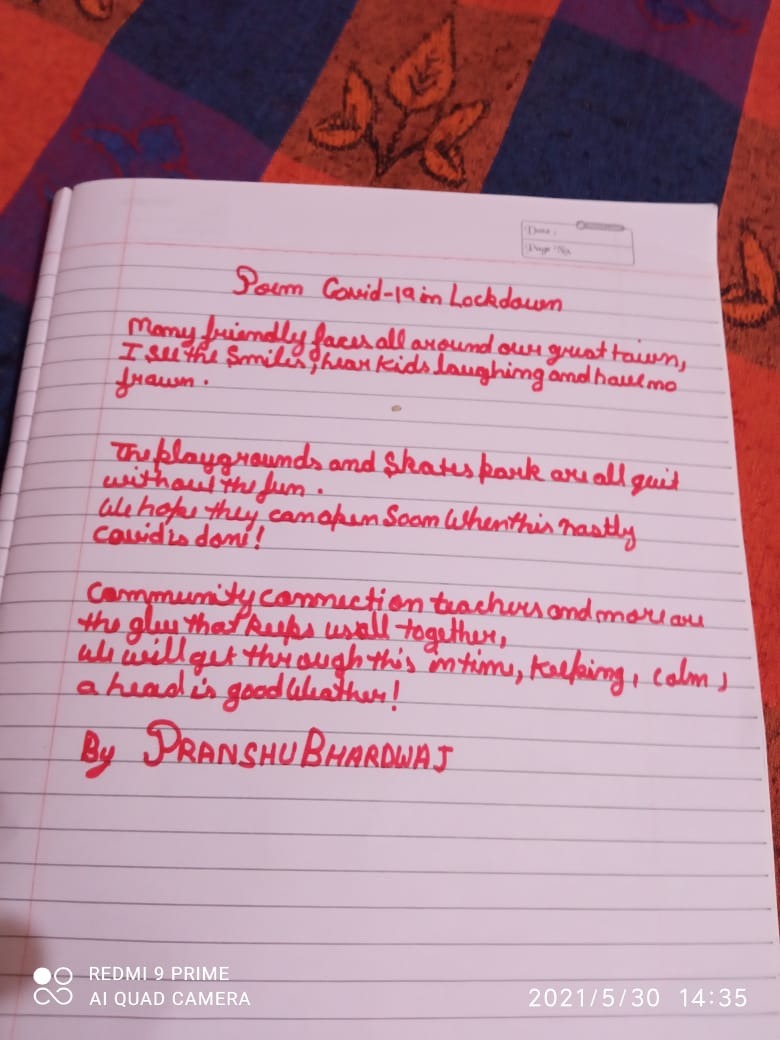 Date :
Page No.
Poem Covid-19 in Lockdown
Many friendly faces all around our great town,
I see the Smiles, hear kids laughing and have no
frown.
The playgrounds and Skates park are all quit
without the fun.
We hope they can open Soon When this nastly
covid is done!
Community connection teachers and more are
the glue that keeps us all together,
We will get through this in time, keeping, calm,
a head is good Weather!
By PRANSHU BHARDWAJ
REDMI 9 PRIME
AI QUAD CAMERA
2021/5/30 14:35